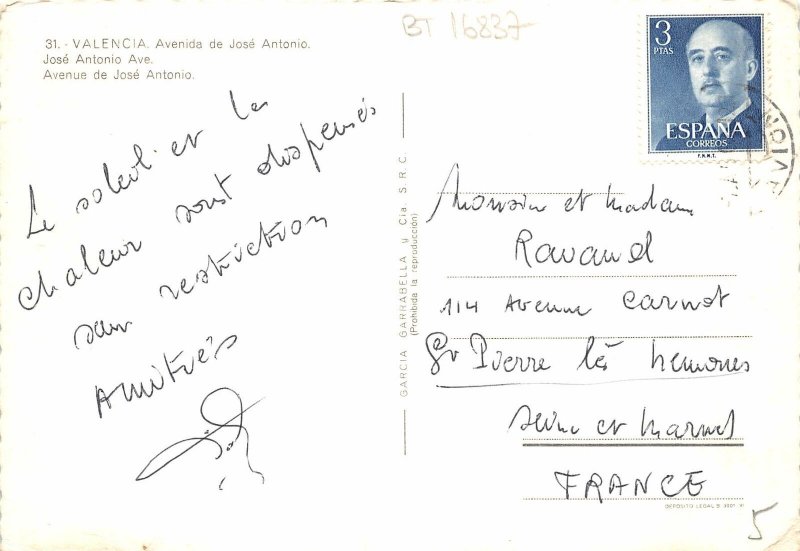 BT 16837
31. - VALENCIA. Avenida de José Antonio.
José Antonio Ave.
Avenue de José Antonio.
Le soleil et la
chaleur sont dispensés
sans restriction
Amitiés
GARCIA GARRABELLA y Cia. S.R.C.
(Prohibida la reproducción)
3
PTAS
ESPAÑA
CORREOS
F.N.M.T.
Monsieur et Madame
Ravaud
114 Avenue Carnot
St Pierre lès Nemours
Seine et Marne
FRANCE
DEPOSITO LEGAL B.
5